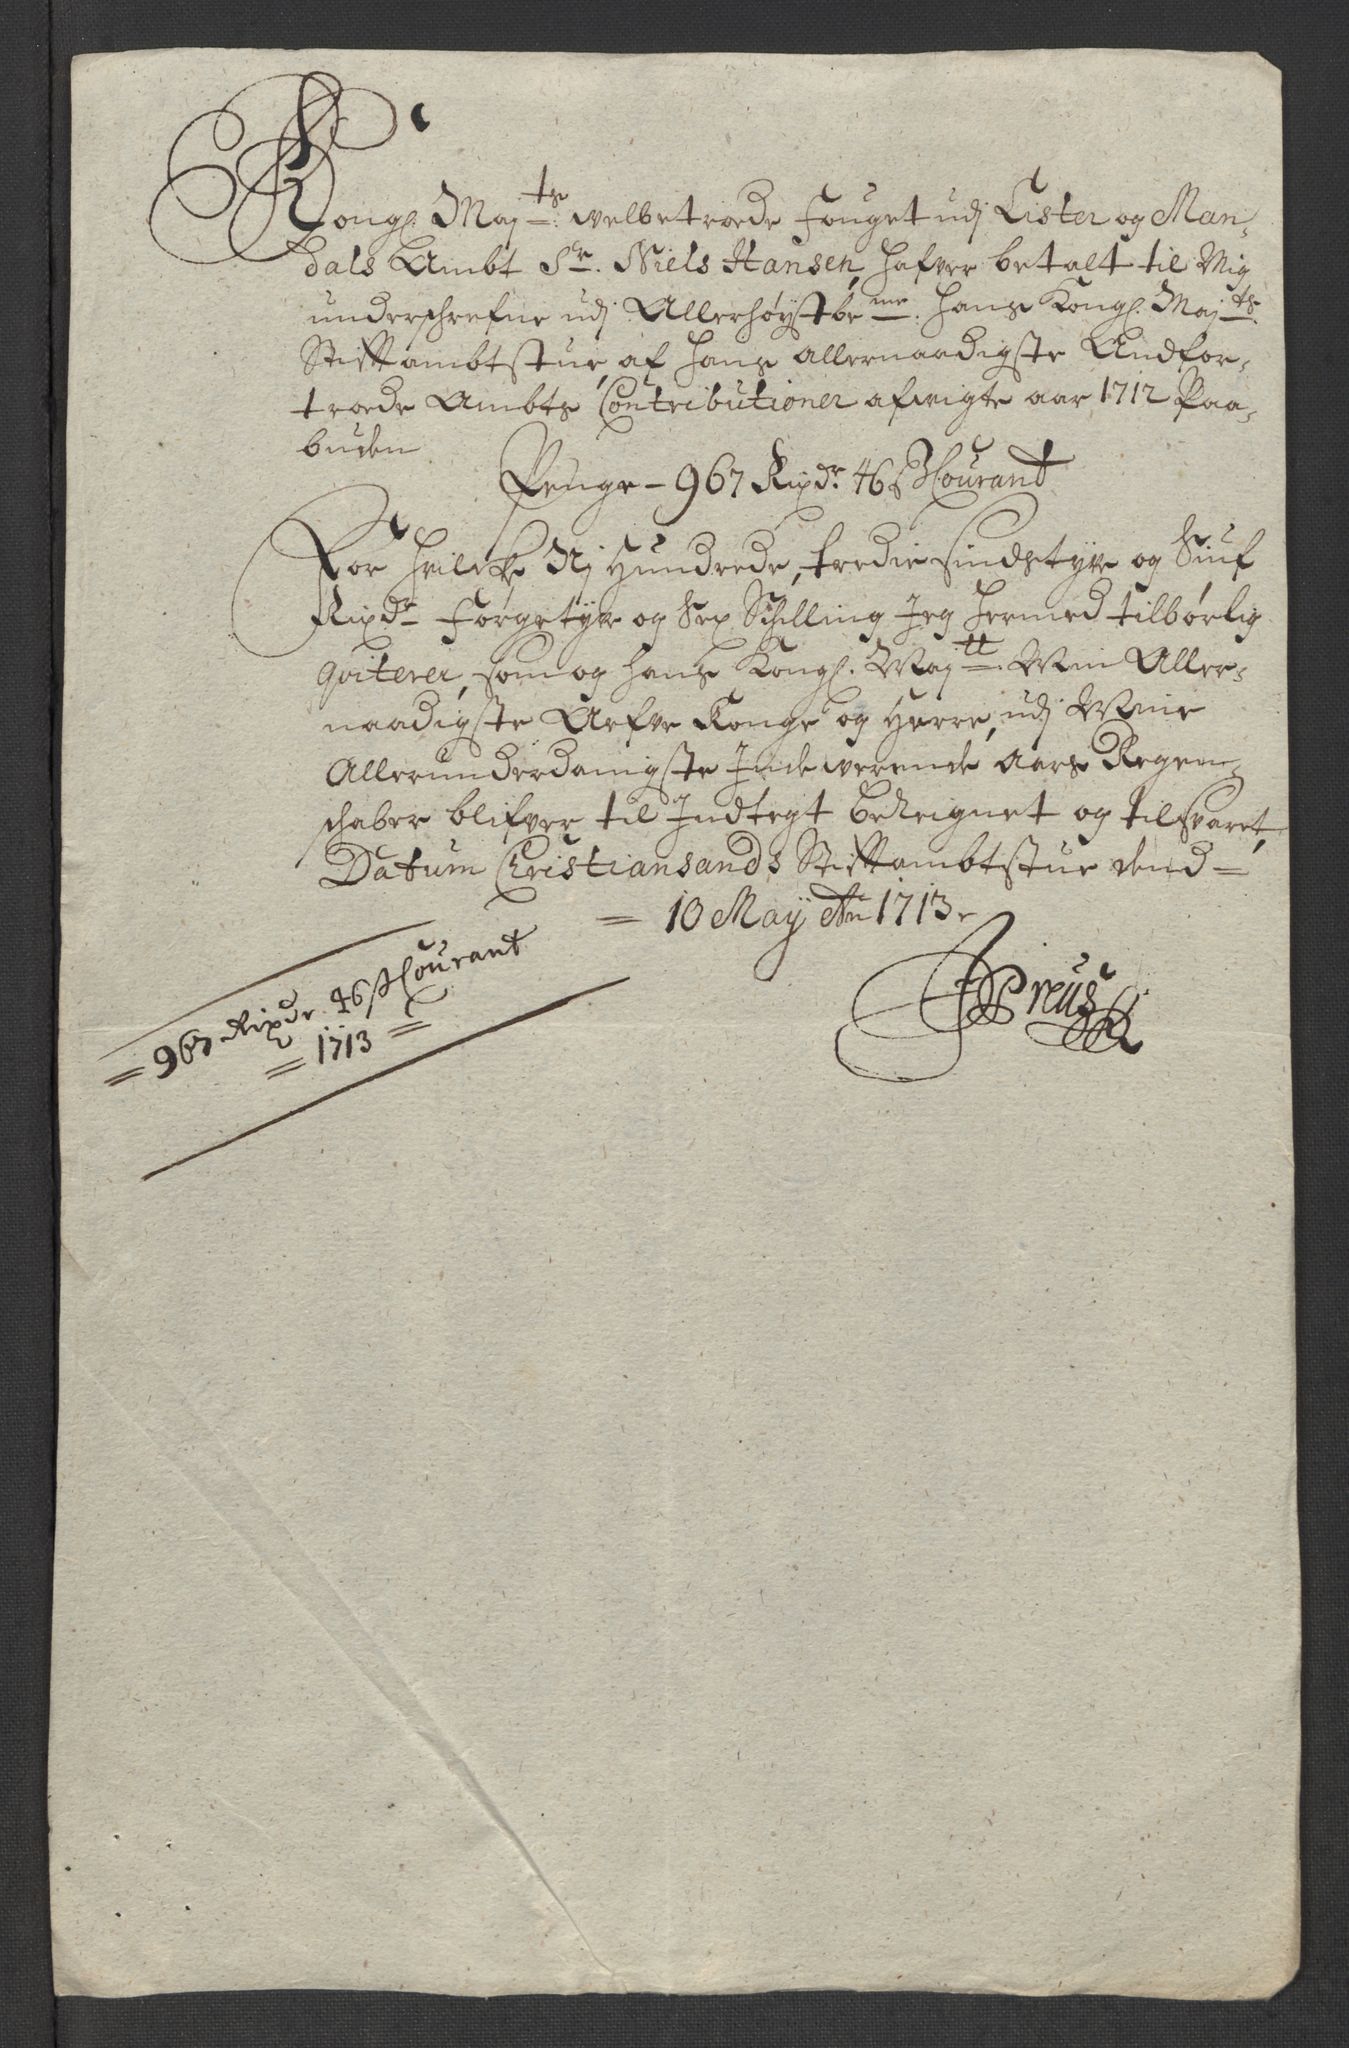 Kongl. Maj.ts velbetroede Fouget udj Lister og Man-
dals Ambt Sr. Niels Hansen, hafver betalt til Mig
underschrefne udj Allerhøystbe.me. Hans Kongl. Maj.ts
Stiftambtstue, af hans allernaadigste Andfor-
troede Ambts Contributioner afvigte aar 1712 Paa-
buden
Penge - 967 Rixdr. 46 s Courant
For hvilcke Nj Hundrede, tredie sindstyve og Siuf
Rixdr førgetyve og Sex Schilling Jeg hermed tilbørlig
qviterer, som og hans Kongl. May.tt. Min Aller-
naadigste Arfve Konge og Herre, udj Mine
Allerunderdanigste Indeverende Aars Regen-
schaber blifver til Indtegt beregnet og tilsvaret,
Datum Christiansands Stiftambtstue dend =
= 10 Maÿ Ao 1713.
JPreüs
= 967 Rixdr. 46 s Courant
= 1713 =